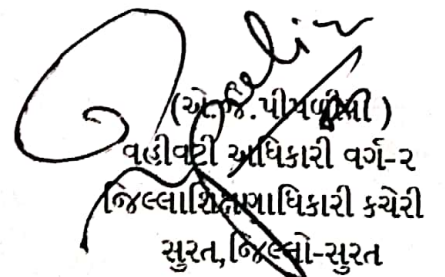 (એ.જે.પીપળીયા )
વહીવટી અધિકારી વર્ગ-૨
જિલ્લાશિક્ષણાધિકારી કચેરી
સુરત,જિલ્લો-સુરત